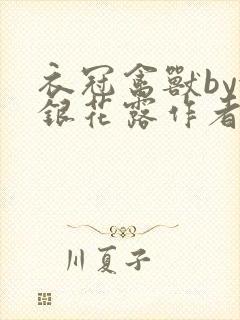 衣冠禽獸by
銀花露作者
川夏子